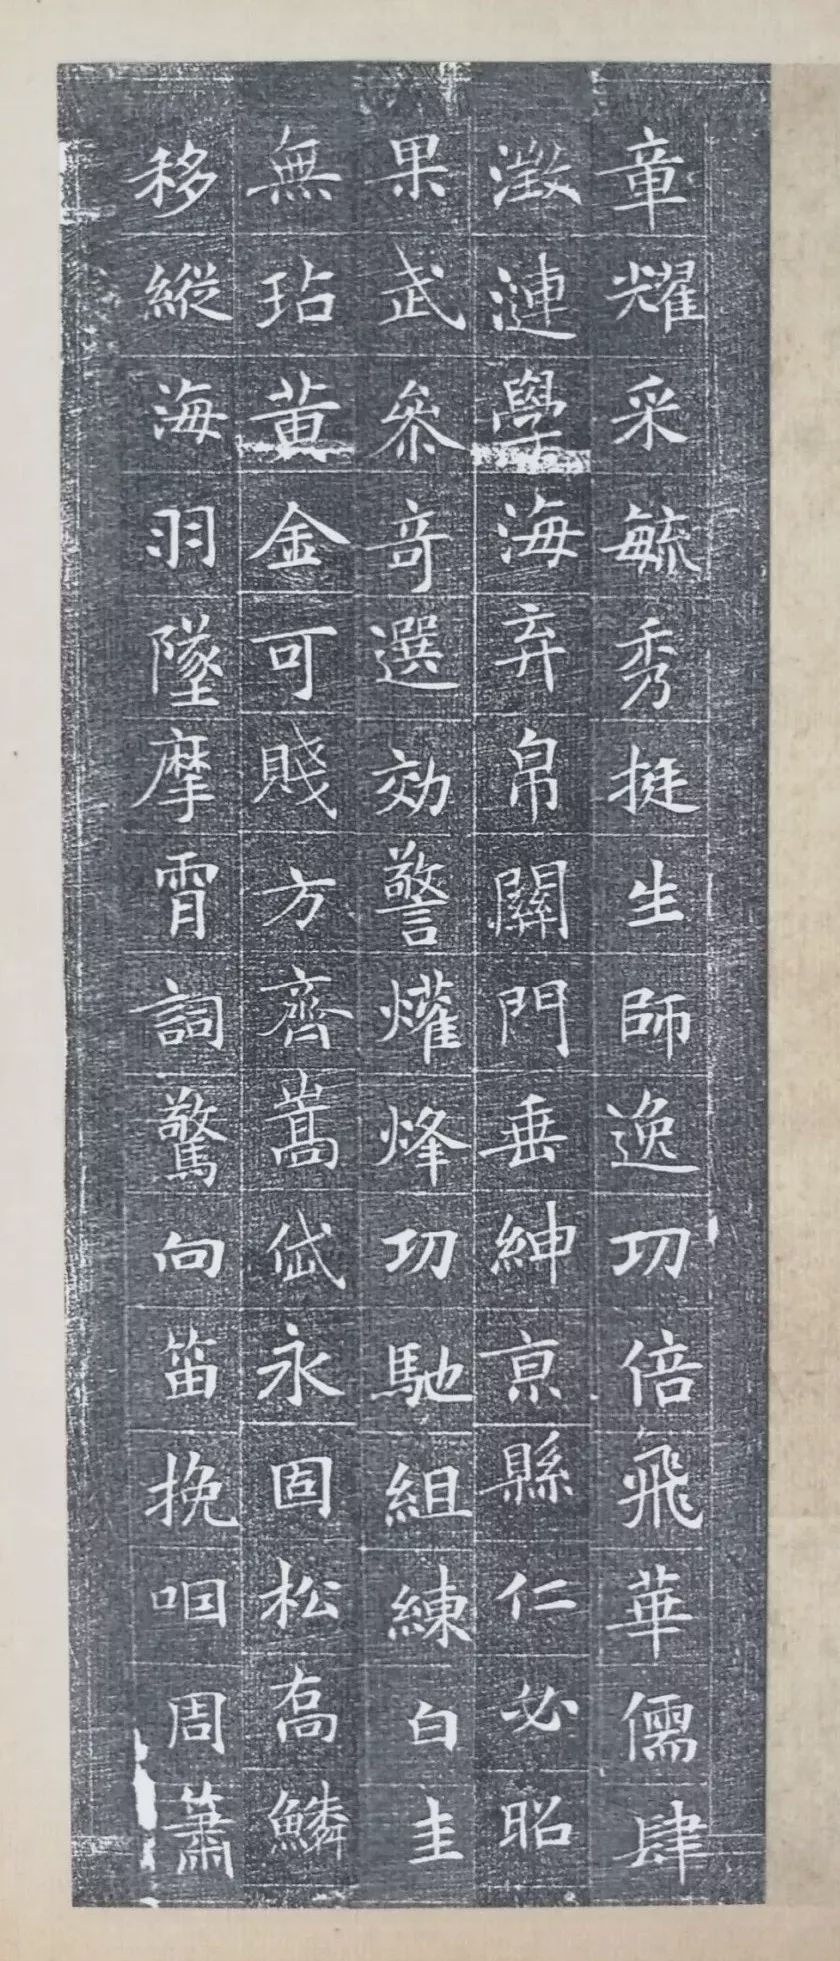 章耀采毓秀挺生師逸功倍飛華儒肆
澂漣學海弃帛關門垂紳京縣仁必昭
果武參奇選効警爟烽功馳組練白圭
無玷黃金可賤方齊嵩岱永固松喬鱗
移縱海羽墜摩霄詞驚向笛挽咽周簫